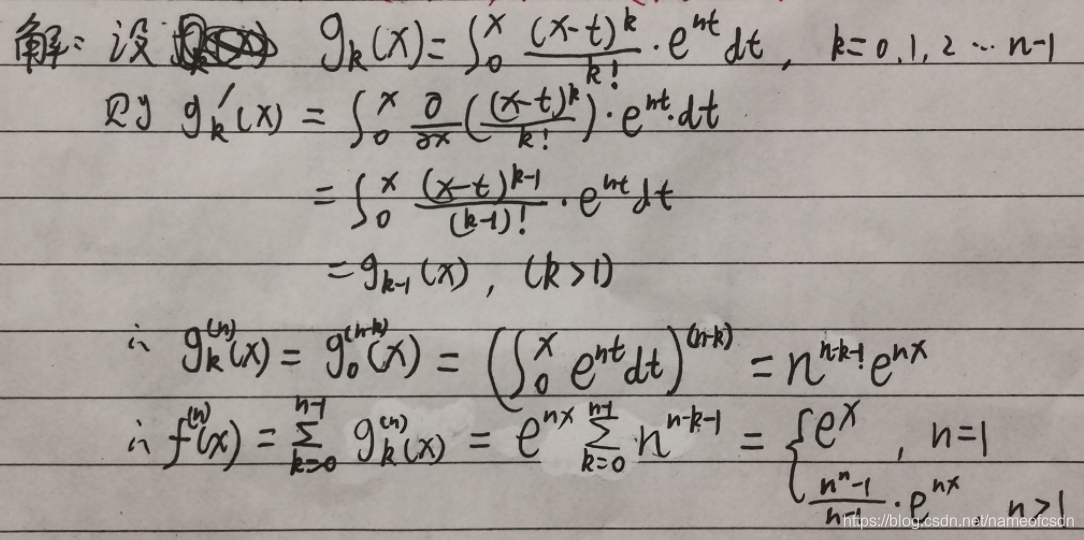 解：设 g_k(x) = ∫_0^x (x-t)^k / k! · e^{nt} dt , k=0,1,2…n-1
则 g_k'(x) = ∫_0^x ∂/∂x ( (x-t)^k / k! ) · e^{nt} · dt
= ∫_0^x (x-t)^{k-1} / (k-1)! · e^{nt} dt
= g_{k-1}(x) , (k>1)
∴ g_k^{(n)}(x) = g_0^{(n-k)}(x) = ( ∫_0^x e^{nt} dt )^{(n-k)} = n^{n-k-1} e^{nx}
∴ f^{(n)}(x) = Σ_{k=0}^{n-1} g_k^{(n)}(x) = e^{nx} Σ_{k=0}^{n-1} n^{n-k-1} = { e^x , n=1
(n^n-1)/(n-1) · e^{nx} , n>1
https://blog.csdn.net/nameofcsdn